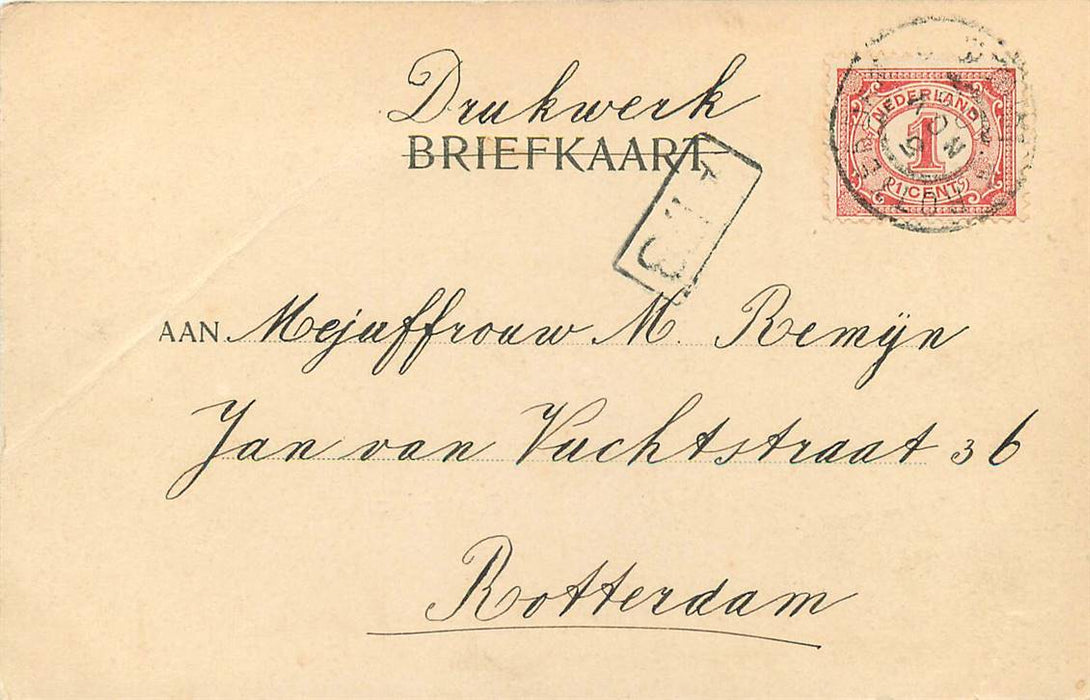 Drukwerk
BRIEFKAART
NEDERLAND
1
1 CENT
AAN Mejuffrouw M. Remijn
Jan van Vuchtstraat 36
Rotterdam